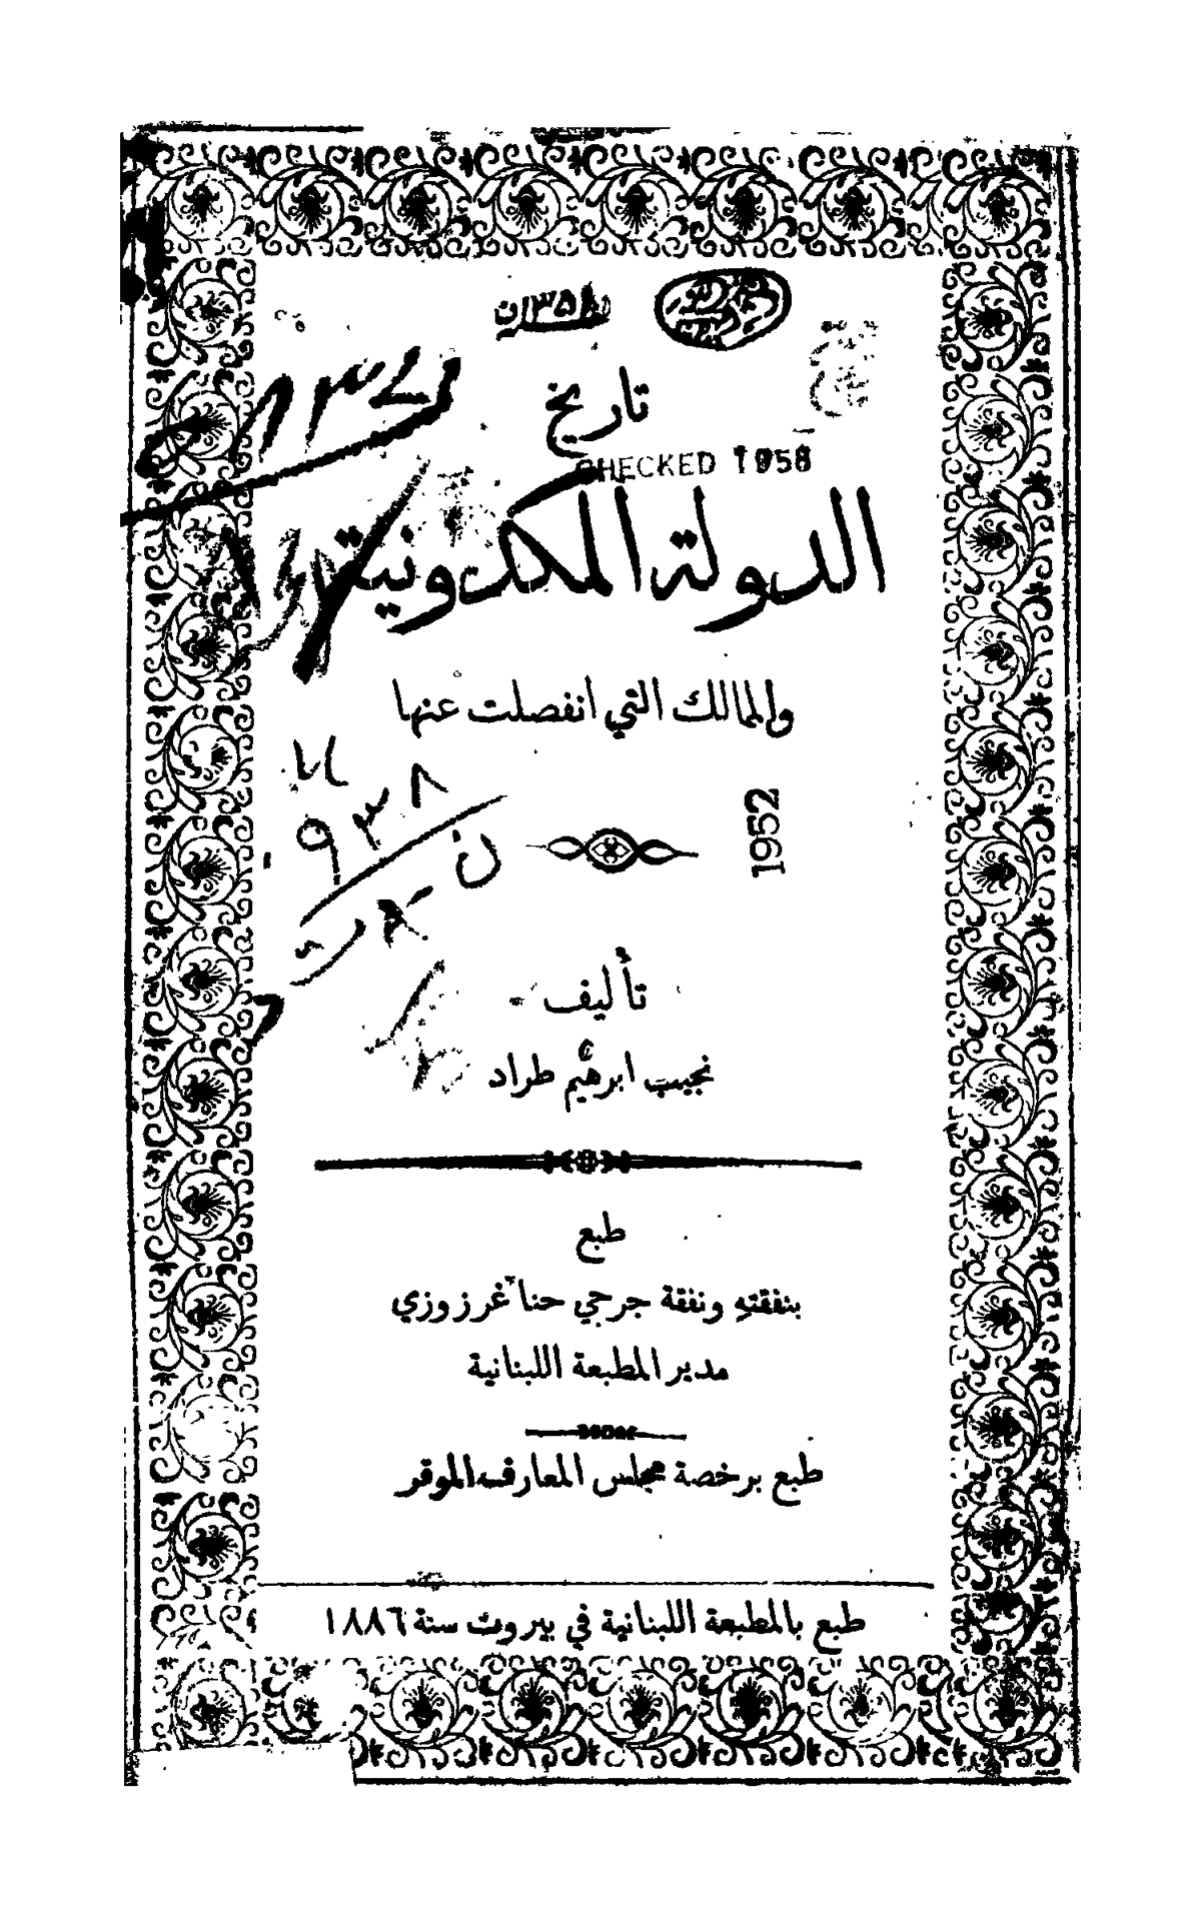 تاريخ
CHECKED 1958
الدولة المكدونية
والممالك التي انفصلت عنها
٩٣٨
ن
1952
تأليف
نجيب ابرهيم طراد
طبع
بنفقته ونفقة جرجي حنا غرزوزي
مدير المطبعة اللبنانية
طبع برخصة مجلس المعارف الموقر
طبع بالمطبعة اللبنانية في بيروت سنة ١٨٨٦